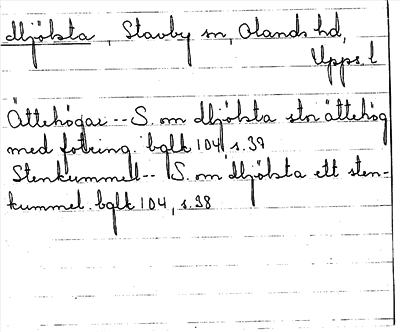 Mjölsta, Stavby sn, Olands hd,
Upps. l
Ättehögar -- S. om Mjölsta stor ättehög
med fotring. bglk 104, s. 37
Stenkummel -- S. om Mjölsta ett sten-
kummel. bglk 104, s. 38